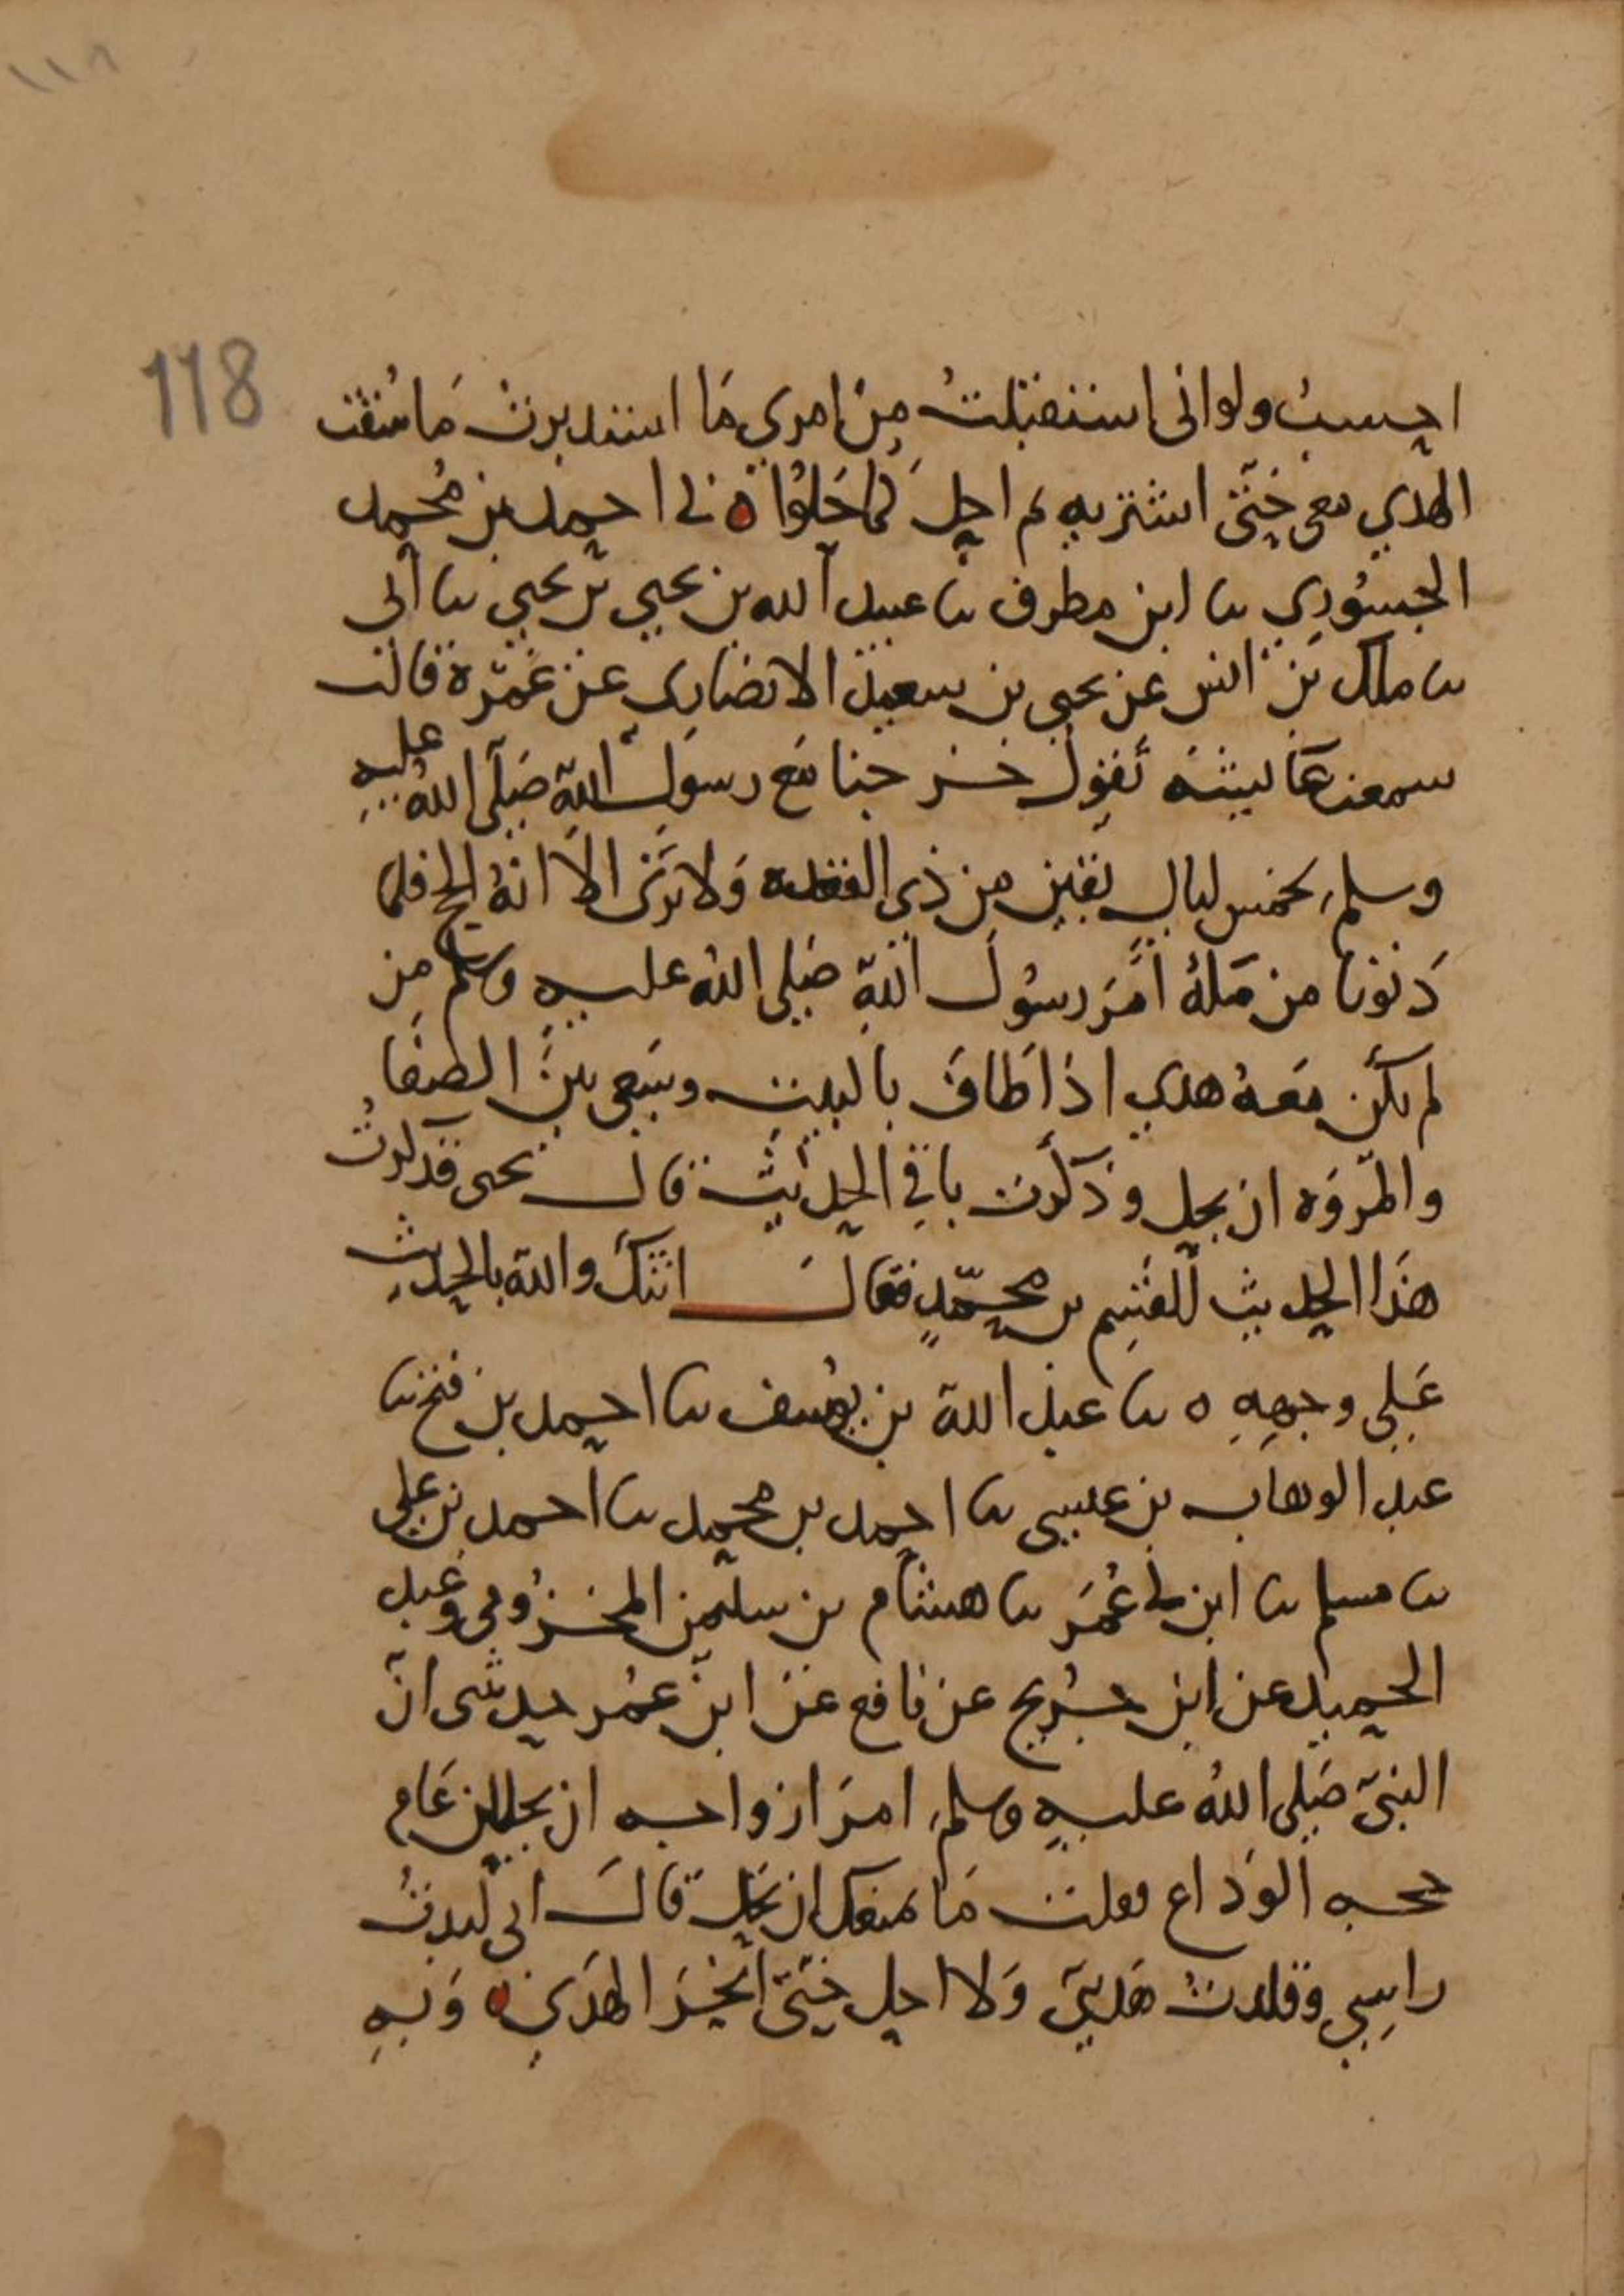 ١١٨
118
احسب ولو انى استقبلتُ من امري مَا استدبرت مَا سُقت
الهدي معى حَتّى اشتريه ثم احل كما حَلوُا ه نى احمد بن مُحمد
الجسُوري نا ابن مطرف نا عبيد الله بن يحيي بن يحيي نا ابى
نا ملك بن انس عن يحيى بن سعيد الانصَاري عن عَمْرة قالت
سمعت عَايشة تقول خرجنا مَع رسوَل اللهِ صَلى اللهُ عليهِ
وسلم لخمس ليال بقين من ذي القعدة وَلا نرَى الا انهُ الحج فلما
دَنونا من مَكة اَمَر رسُولَ اللهِ صَلى اللهُ عليهِ وسلم من
لم يكن مَعهُ هدي اذا طَافَ بالبيت وسَعى بينَ الصفَا
والمَروَه ان يحل وذكرت باقي الحديث قال يحى فذكرتُ
هذَا الحديث للقسِم بن محمّدٍ فقالَ اتتكَ والله بالحديث
عَلي وجههِ ه نا عبد الله بن يوُسف نا احمد بن فتح نا
عبد الوهاب بن عيسى نا احمد بن محمد نا احمد بن علي
نا مسلم نا ابن ابى عُمَر نا هشام بن سليمن المخزُومى وعبد
الحميد عن ابن جُريج عن نافع عن ابن عمُر حدثتنى انّ
النبيّ صَلى اللهُ عليهِ وسلم امرَ ازواجه ان يحللن عَام
حجه الوَداع فقلت مَا يمنعك ان تحل قالَ انى لبدتُ
راسِي وقلدتُ هَديىَ وَلا احل حَتّى انحَر الهَدي ه وَبهِ